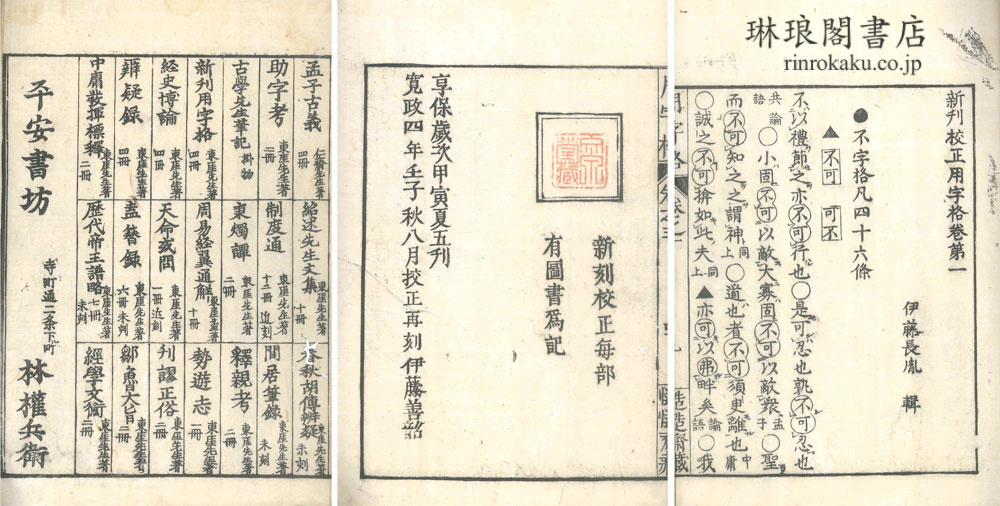 琳琅閣書店
rinrokaku.co.jp
新刊校正用字格卷第一
伊藤長胤 輯
●不字格凡四十六條
▲不可 可不
不以禮節之亦不可行也○是可忍也孰不可忍也
共論語○小固不可以敵大寡固不可以敵衆孟子○聖
而不可知之之謂神上同○道也者不可須臾離也中庸
○誠之不可揜如此夫上同▲亦可以弗畔矣論語○我
新刻校正每部
有圖書爲記
享保歲次甲寅夏五刊
寬政四年壬子秋八月挍正再刻伊藤善韶
孟子古義 仁齋先生著 四冊
助字考 東厓先生著 二冊
古學先生筆記 掛物
新刊用字格 東厓先生著 四冊
經史博論 東厓先生著 四冊
辨疑録 東厓先生著 四冊
中庸發揮標釋 東厓先生著 二冊
紹述先生文集 東厓先生著 十冊
制度通 東厓先生著 十二冊 近刻
東燭譚 東厓先生著 二冊
周易經翼通解 東厓先生著 十冊
天命或問 東厓先生著 一冊 近刻
蓋簪録 東厓先生著 六冊 未刻
歷代帝王譜略 東厓先生著 七冊 未刻
春秋胡傳辨疑 東厓先生著 未刻
間居筆錄 東厓先生著 未刻
釋親考 東厓先生著 二冊
勢遊志 東厓先生著 一冊
刊謬正俗 東厓先生著 二冊
鄒魯大旨 東厓先生著 二冊
經學文衡 東厓先生著 二冊
平安書坊 寺町通二条下町 林權兵衛